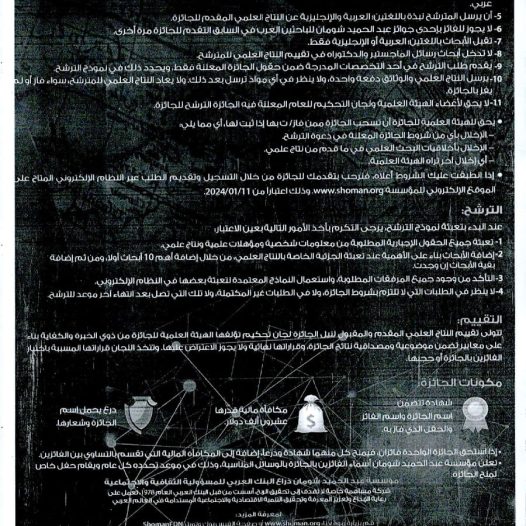 عربي.
5- أن يرسل المترشح نبذة باللغتين: العربية والإنجليزية عن النتاج العلمي المقدم للجائزة.
6- لا يجوز للفائز بإحدى جوائز عبد الحميد شومان للباحثين العرب في السابق التقدم للجائزة مرة أخرى.
7- تقبل الأبحاث باللغتين: العربية أو الإنجليزية فقط.
8- لا تدخل أبحاث رسائل الماجستير والدكتوراه في تقييم النتاج العلمي للمترشح.
9- يقدم طلب الترشح في أحد التخصصات المدرجة ضمن حقول الجائزة المعلنة فقط، ويحدد ذلك في نموذج الترشح.
10- يرسل النتاج العلمي والوثائق دفعة واحدة، ولا ينظر في أي مواد ترسل بعد ذلك. ولا يعاد النتاج العلمي للمترشح، سواء فاز أو لم
يفز بالجائزة.
11- لا يحق لأعضاء الهيئة العلمية ولجان التحكيم للعام المعلنة فيه الجائزة الترشح للجائزة.
• يحق للهيئة العلمية للجائزة أن تسحب الجائزة ممن فاز/ت بها إذا ثبت لها، أي مما يلي:
– الإخلال بأي من شروط الجائزة المعلنة في دعوة الترشح.
– الإخلال بأخلاقيات البحث العلمي في ما قدم من نتاج علمي.
– أي إخلال آخر تراه الهيئة العلمية.
• إذا انطبقت عليك الشروط أعلاه، فنرحب بتقدمك للجائزة من خلال التسجيل وتقديم الطلب عبر النظام الإلكتروني المتاح على
الموقع الإلكتروني للمؤسسة www.shoman.org، وذلك اعتباراً من 2024/01/11.
الترشح:
عند البدء بتعبئة نموذج الترشح، يرجى التكرم بأخذ الأمور التالية بعين الاعتبار:
1- تعبئة جميع الحقول الإجبارية المطلوبة من معلومات شخصية ومؤهلات علمية ونتاج علمي.
2- إضافة الأبحاث بناء على الأهمية عند تعبئة الجزئية الخاصة بالنتاج العلمي، من خلال إضافة أهم 10 أبحاث أولا، ومن ثم إضافة
بقية الأبحاث إن وجدت.
3- التأكد من وجود جميع المرفقات المطلوبة، واستعمال النماذج المعتمدة لتعبئة بعضها في النظام الإلكتروني.
4- لا ينظر في الطلبات التي لا تلتزم بشروط الجائزة، ولا في الطلبات غير المكتملة، ولا تلك التي تصل بعد انتهاء آخر موعد للترشح.
التقييم:
تتولى تقييم النتاج العلمي المقدم والمقبول لنيل الجائزة لجان تحكيم تؤلفها الهيئة العلمية للجائزة من ذوي الخبرة والكفاية بناء
على معايير تضمن موضوعية ومصداقية نتائج الجائزة، وقراراتها نهائية ولا يجوز الاعتراض عليها. وتتخذ اللجان قراراتها المسببة باختيار
الفائزين بالجائزة أو حجبها.
مكونات الجائزة:
شهادة تتضمن
اسم الجائزة واسم الفائز
والحقل الذي فاز به.
مكافأة مالية قدرها
عشرون ألف دولار.
درع يحمل اسم
الجائزة وشعارها.
• إذا استحق الجائزة الواحدة فائزان، فيمنح كل منهما شهادة ودرعا، إضافة إلى المكافأة المالية التي تقسم بالتساوي بين الفائزين.
• تعلن مؤسسة عبد الحميد شومان أسماء الفائزين بالجائزة بالوسائل المناسبة، وذلك في موعد تحدده كل عام ويقام حفل خاص
لمنح الجائزة.
مؤسسة عبد الحميد شومان ذراع البنك العربي للمسؤولية الثقافية والاجتماعية
لمعرفة المزيد:
www.shoman.org
ShomanFDN